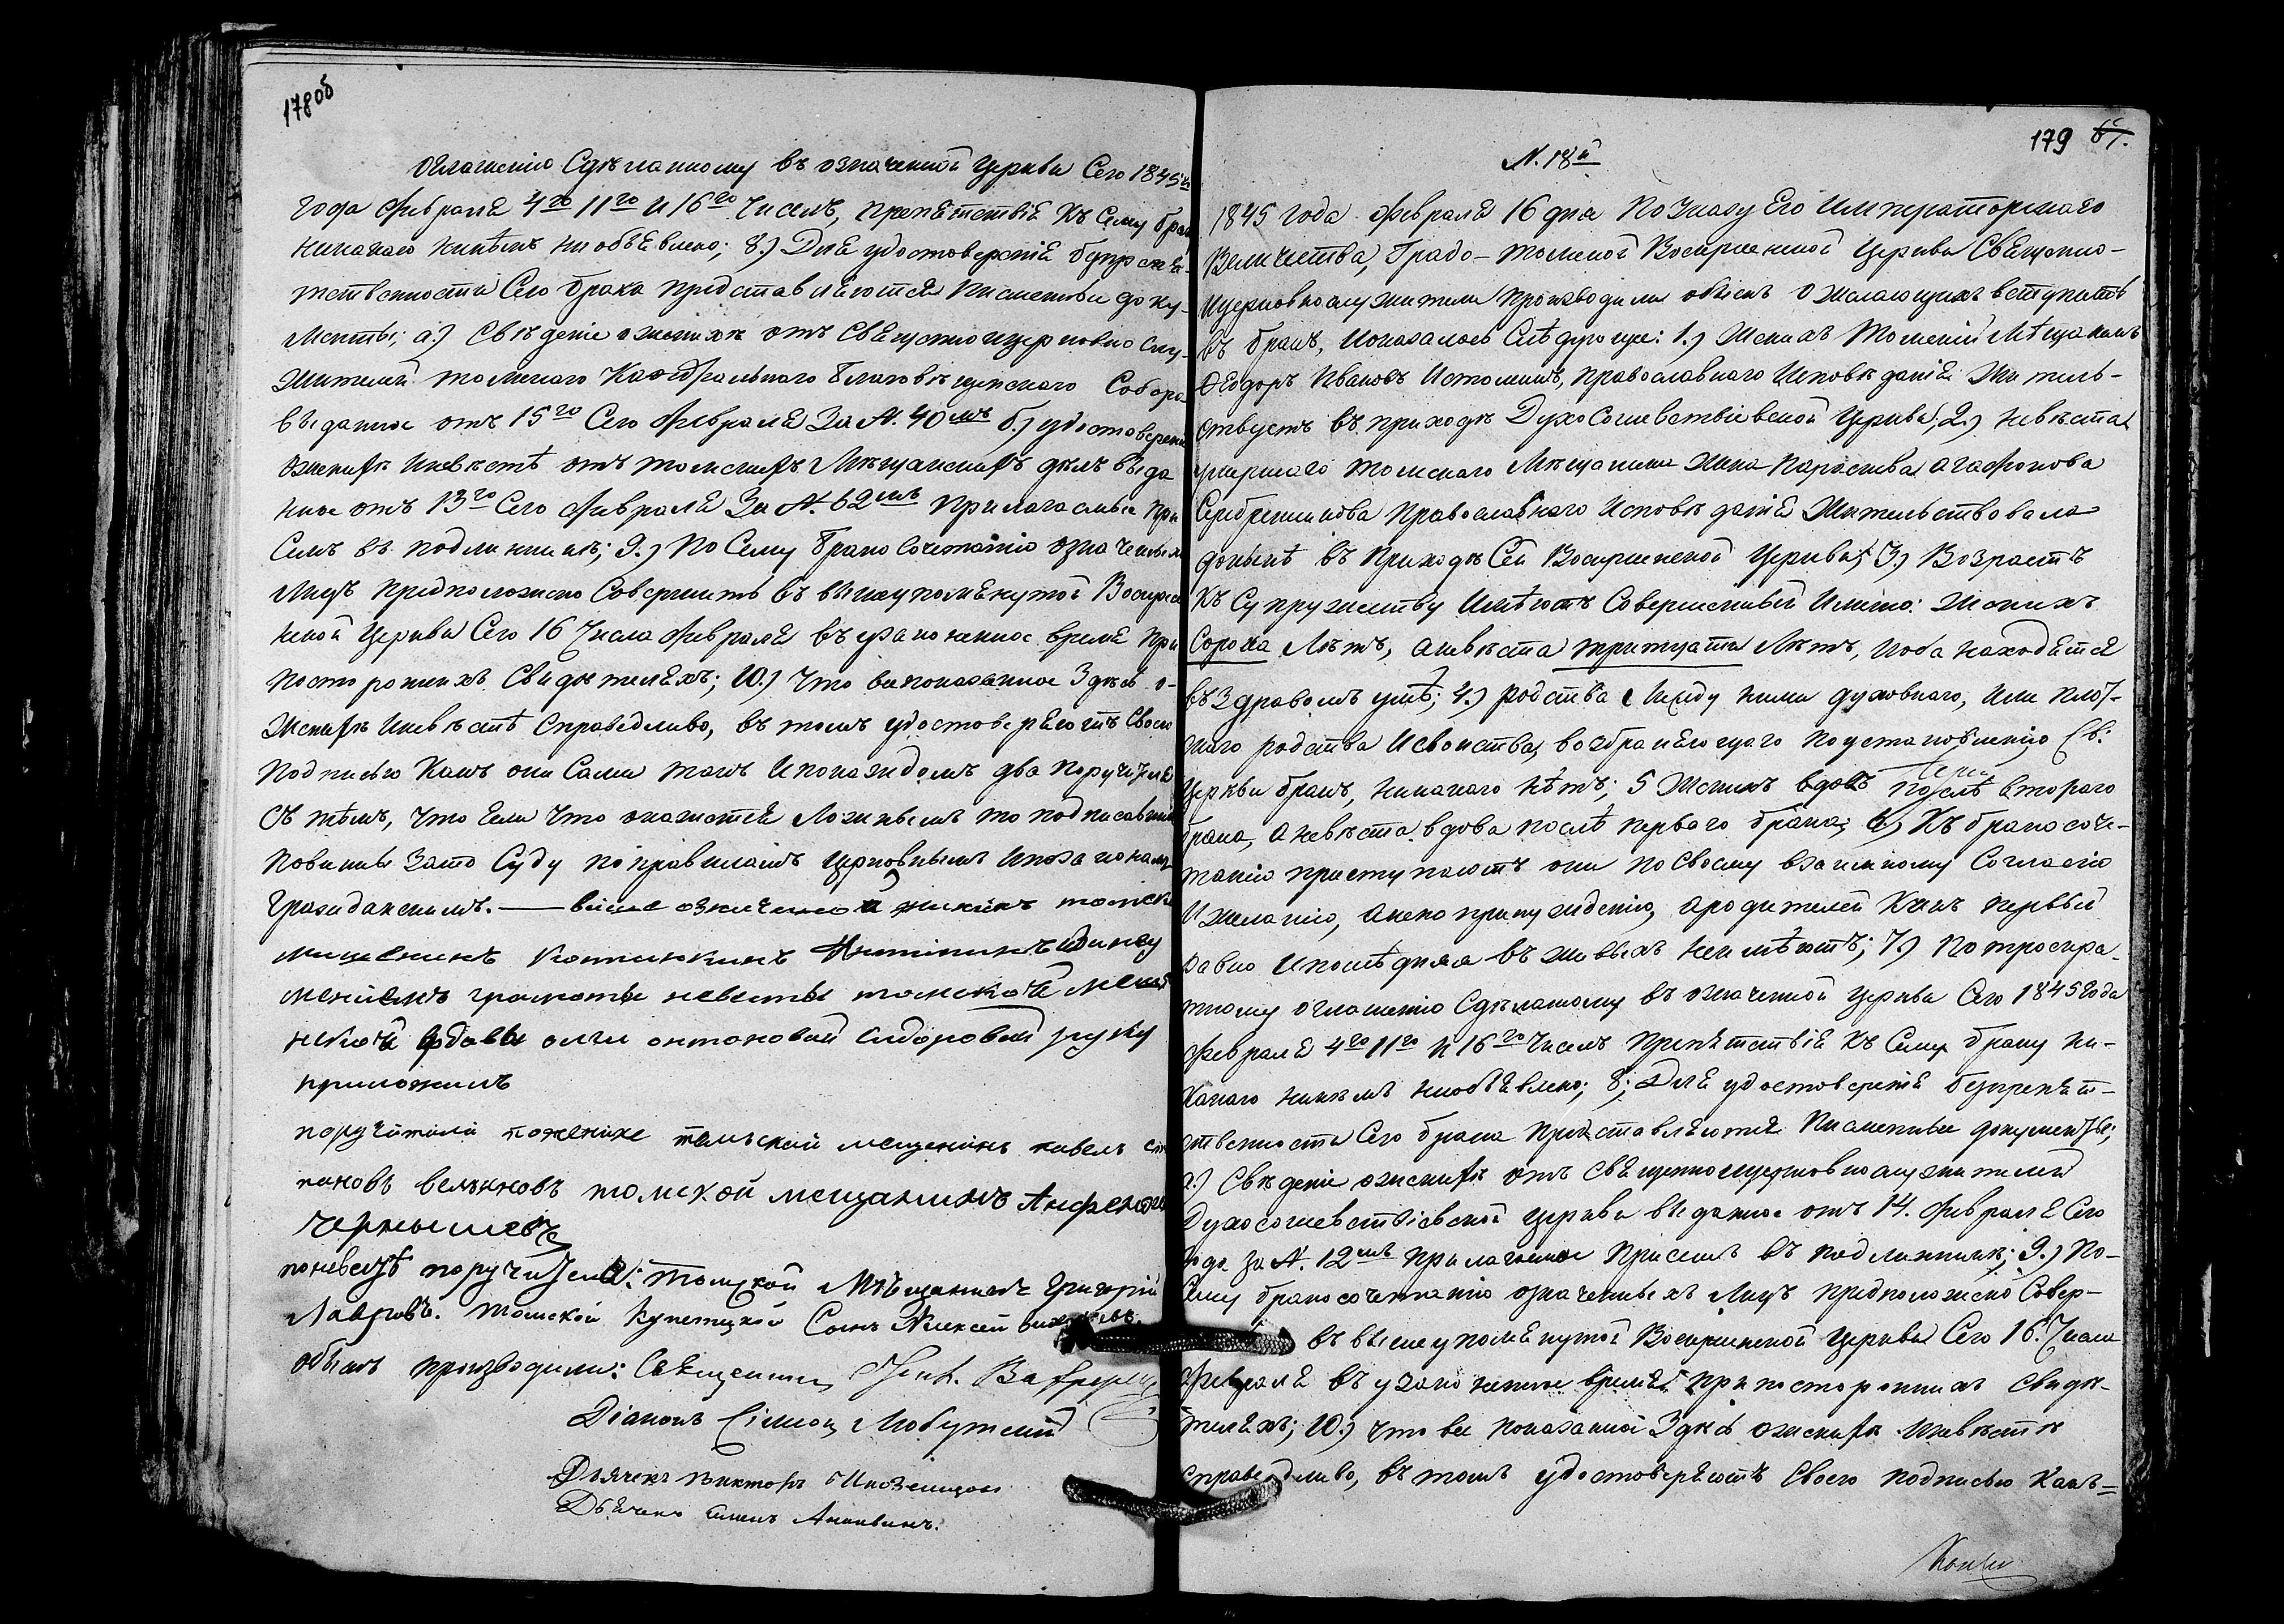 178об
оглашенію сдѣланному въ означенной церкви сего 1845го
года февраля 4го 11го и 16го чиселъ, препятствія къ сему браку
никакого никѣмъ не объявлено; 8.) Для удостоверенія безпрепя-
тственности сего брака представляются письменные доку-
менты; а.) Свѣденіе о женихѣ отъ священноцерковнослу-
жителей томскаго Кафедральнаго Благовѣщенскаго Собора
выданное отъ 15го сего февраля за №. 40мъ б.) удостоверение
о женихѣ и невѣстѣ отъ томскихъ мѣщанскихъ дѣлъ выда
нное отъ 13го сего февраля за №. 62мъ прилагаемые при
семъ въ подлинникѣ; 9.) По сему бракосочетанію означенныхъ
лицъ предположено совершить въ вышеупомянутой Воскресе
нской церкви сего 16 числа февраля въ узаконенное время при
постороннихъ свидѣтеляхъ; 10.) Что все показанное здѣсь о-
женихѣ и невѣстѣ справедливо, въ томъ удостоверяютъ своею
подписью какъ они сами такъ и по каждомъ два поручителя
съ тѣмъ, что если что окажется ложнымъ то подписавшіе
повинны за то суду по правиламъ церковнымъ и по законамъ
гражданскимъ. — више означеной жених томски
мещенинъ
менiемъ грамоты невесты томской меща
нской вдовы ольги онтоновой сидоровой руку
приложилъ
поручители по женихе томской мещенинъ павелъ сте
пановъ томской мещанинъ
Чернышевъ
по невестѣ поручители: Томской Мѣщанинъ Григорій
Лавровъ. Томской Купетцкой Сынъ Алексей
обыскъ производили: Священникъ
Діаконъ Сімеон
Дьячекъ Викторъ
Дьячекъ
179
N. 18й
1845 года февраля 16 дня по Указу Его Императорскаго
Величества, Градо-Томской Воскресенской церкви священно-
и церковнослужители производили обыскъ о желающихъ вступить
въ бракъ, и оказалось слѣдующее: 1.) Женихъ Томскій Мѣщанинъ
Ѳеодоръ Ивановъ Истоминъ, православнаго исповѣданія житель-
ствуетъ въ приходѣ Духосошественской церкви; 2.) невѣста
умершаго томскаго мѣщанина жена Параскева Агафонова
Серебренникова православнаго исповѣданія жительствовала
донынѣ въ приходѣ сей Воскресенской церкви; 3.) Возрастъ
къ супружеству имѣютъ совершенный именно: женихъ
сорока лѣтъ, а невѣста тритцати лѣтъ, и оба находятся
въ здравомъ умѣ; 4.) родства между ними духовнаго, или плот-
скаго родства и свойства, возбраняющаго по установленію Св:
Церкви бракъ, никакого нѣтъ; 5 Женихъ вдовъ послѣ втораго
брака, а невѣста вдова послѣ перваго брака; 6.) Къ бракосоче-
танію приступаютъ они по своему взаимному согласію
и желанію, а не по принужденію, а родителей какъ первый
равно и послѣдняя въ живыхъ не имѣютъ; 7.) По троекра-
тному оглашенію сдѣланному въ означенной церкви сего 1845 года
февраля 4го 11го и 16го чиселъ препятствія къ сему браку ни-
какого никѣмъ не объявлено; 8.) Для удостоверенія безпрепят-
ственности сего брака представляются письменные документы;
а.) Свѣденіе о женихѣ отъ священноцерковнослужителей
Духосошественской церкви выданное отъ 14. февраля сего
года за №. 12мъ прилагаемое при семъ въ подлинникѣ; 9.) По-
сему бракосочетанію означенныхъ лицъ предположено совер-
въ вышеупомянутой Воскресенской церкви сего 16. числа
февраля въ узаконенное время при постороннихъ свидѣ-
теляхъ; 10.) Что все показанное здѣсь о женихѣ и невѣстѣ
справедливо, въ томъ удостоверяютъ своею подписью какъ-